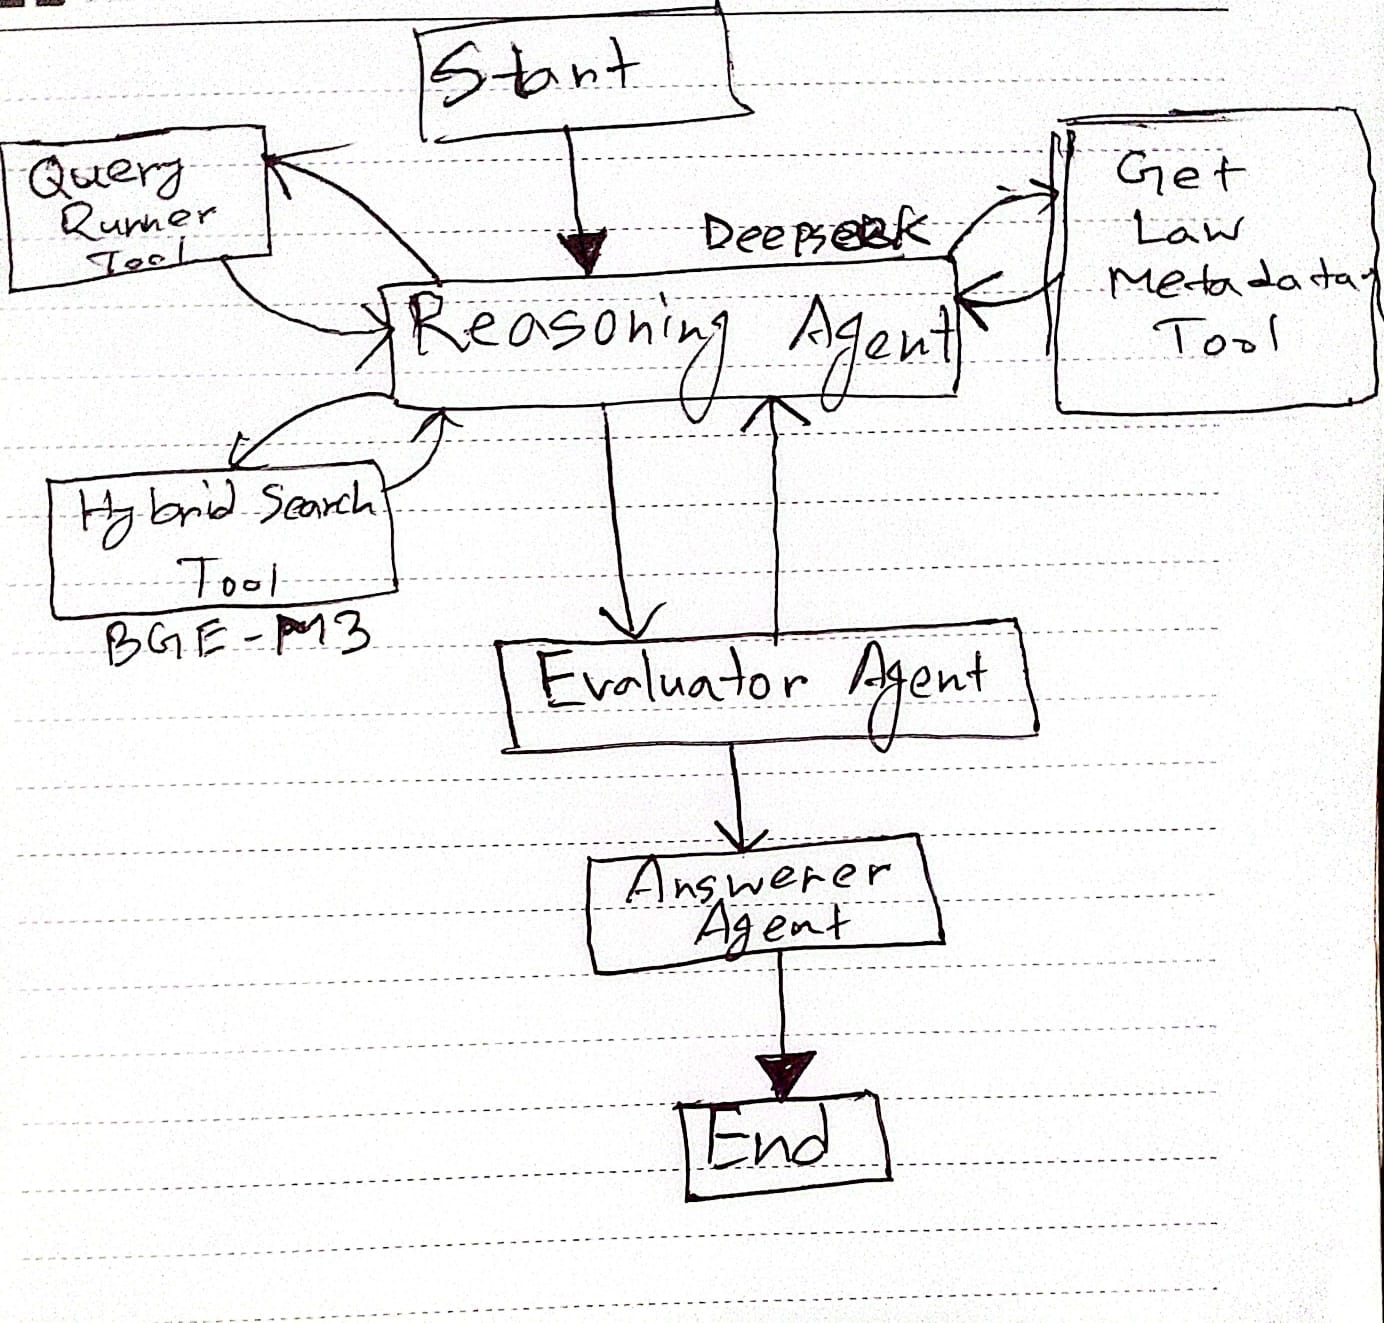 Start
Query
Runner
Tool
Get
Law
Metadata
Tool
Deepseek
Reasoning Agent
Hybrid Search
Tool
BGE-M3
Evaluator Agent
Answerer
Agent
End